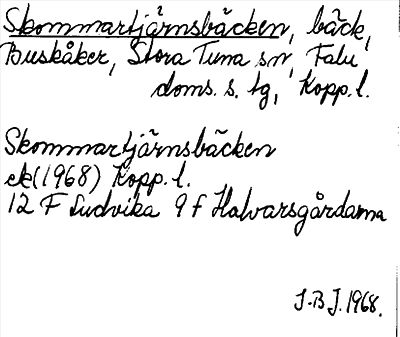 Skommartjärnsbäcken, bäck,
Buskåker, Stora Tuna sn, Falu
doms. s. tg, Kopp. l.
Skommartjärnsbäcken
ek (1968) Kopp. l.
12 F Ludvika 9 f Halvarsgårdarna
J.B J. 1968.